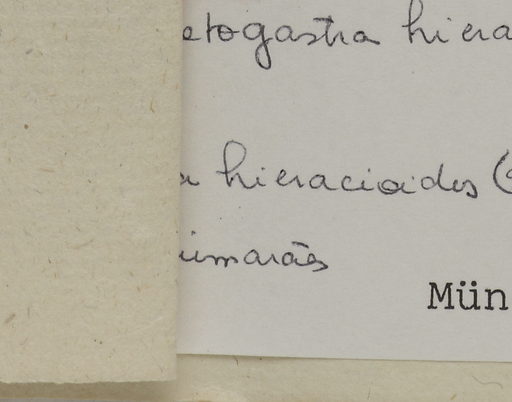 etogastra hiera
a hieracioides (
uimarães
Mün